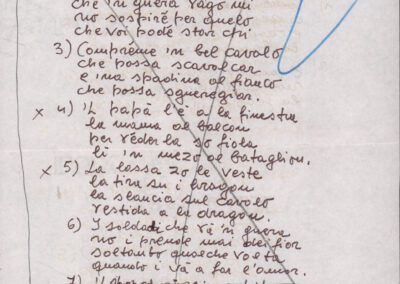 che in guera vago mi
no sospirè per quelo
che voi podè star chi
3) Comprème 'n bel cavalo
che possa scavalcar
e 'na spadina al fianco
che possa sguregiar.
x 4) 'L papà l'è a la finestra
la mama al balcon
per véder la so fiola
lì 'n mezo al bataglion.
x 5) La lassa zo le veste
la tira su i bragon
la slancia sul cavalo
vestida a la dragon.
6) I soldadi che va 'n guera
no i prende mai dei fior
soltanto qualche volta
quando i va a far l'amor.